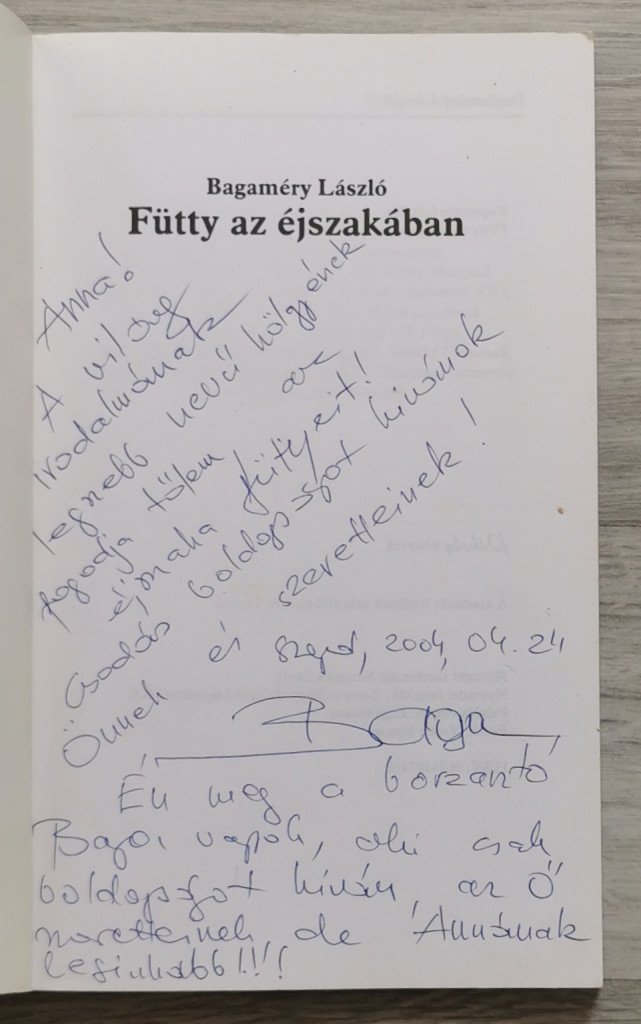 Bagaméry László
Fütty az éjszakában
Anna!
A világ
irodalmának
legszebb nevű hölgyének
fogadja tőlem az
éjszaka füttyeit!
Csodás boldogságot kívánok
Önnek és szeretteinek!
Szeged, 2004, 04. 24
Baga
Én meg a borzantó
Baga vagyok, aki csak
boldogságot kíván, az Ő
szeretteinek, de Annának
leginkább!!!!